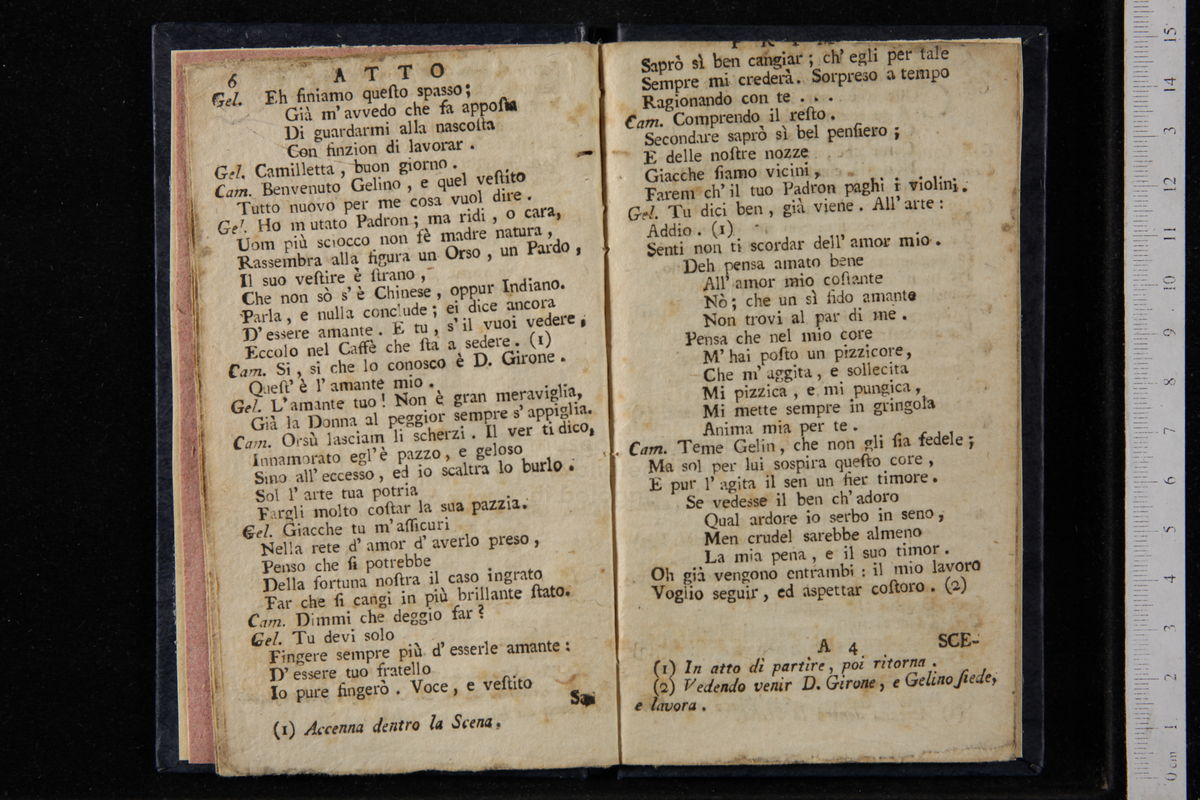 6
ATTO
Gel. Eh finiamo queſto spasso;
Già m'avvedo che fa appoſta
Di guardarmi alla nascoſta
Con finzion di lavorar.
Gel. Camilletta, buon giorno.
Cam. Benvenuto Gelino, e quel veſtito
Tutto nuovo per me cosa vuol dire.
Gel. Ho mutato Padron; ma ridi, o cara,
Uom più sciocco non fè madre natura,
Rassembra alla figura un Orso, un Pardo,
Il suo veſtire è ſtrano,
Che non sò s'è Chinese, oppur Indiano.
Parla, e nulla conclude; ei dice ancora
D'essere amante. E tu, s'il vuoi vedere,
Eccolo nel Caffè che ſta a sedere. (1)
Cam. Si, si che lo conosco è D. Girone.
Queſt'è l'amante mio.
Gel. L'amante tuo! Non è gran meraviglia,
Già la Donna al peggior sempre s'appiglia.
Cam. Orsù lasciam li scherzi. Il ver ti dico,
Innamorato egl'è pazzo, e geloso
Sino all'eccesso, ed io scaltra lo burlo.
Sol l'arte tua potria
Fargli molto coſtar la sua pazzia.
Gel. Giacche tu m'afficuri
Nella rete d'amor d'averlo preso,
Penso che ſi potrebbe
Della fortuna noſtra il caso ingrato
Far che ſi cangi in più brillante ſtato.
Cam. Dimmi che deggio far?
Gel. Tu devi solo
Fingere sempre più d'esserle amante:
D'essere tuo fratello
Io pure fingerò. Voce, e veſtito
(1) Accenna dentro la Scena.
Saprò sì ben cangiar; ch'egli per tale
Sempre mi crederà. Sorpreso a tempo
Ragionando con te ...
Cam. Comprendo il reſto.
Secondare saprò sì bel penſiero;
E delle noſtre nozze
Giacche ſiamo vicini,
Farem ch'il tuo Padron paghi i violini.
Gel. Tu dici ben, già viene. All'arte:
Addio. (1)
Senti non ti scordar dell'amor mio.
Deh pensa amato bene
All'amor mio coſtante
Nò; che un sì fido amante
Non trovi al par di me.
Pensa che nel mio core
M'hai poſto un pizzicore,
Che m'aggita, e sollecita
Mi pizzica, e mi pungica,
Mi mette sempre in gringola
Anima mia per te.
Cam. Teme Gelin, che non gli ſia fedele;
Ma sol per lui sospira queſto core,
E pur l'agita il sen un fier timore.
Se vedesse il ben ch'adoro
Qual ardore io serbo in seno,
Men crudel sarebbe almeno
La mia pena, e il suo timor.
Oh già vengono entrambi: il mio lavoro
Voglio seguir, ed aspettar coſtoro. (2)
A 4
SCE-
(1) In atto di partire, poi ritorna.
(2) Vedendo venir D. Girone, e Gelino ſiede,
e lavora.
0 cm 1 2 3 4 5 6 7 8 9 10 11 12 13 14 15